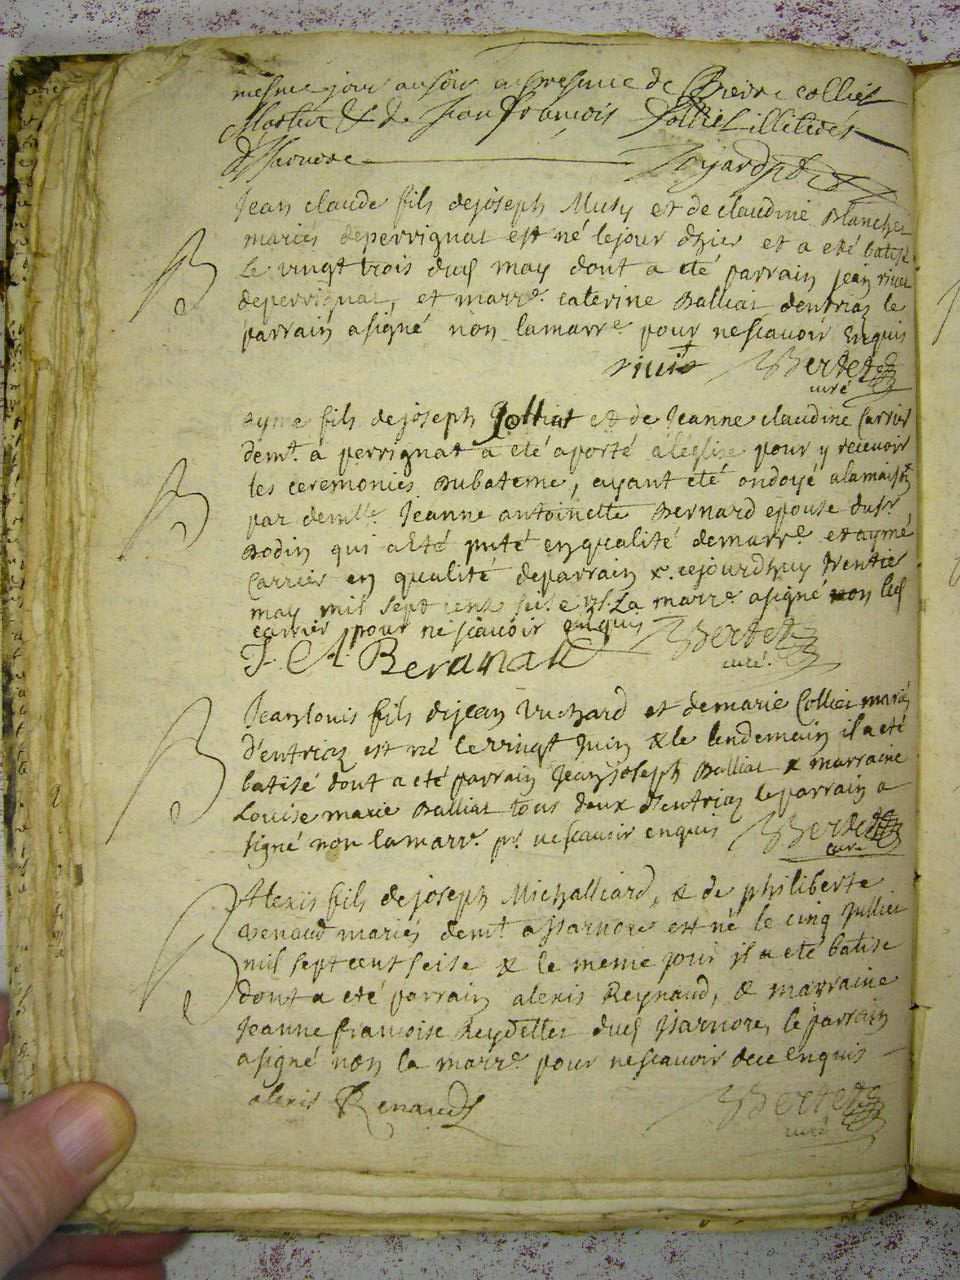 mesme jour au soir en presence de Pierre Collet
Martin & de Jean François Collet illiterés
d'Isernore
Jean claude fils de joseph Musy et de claudine Blanchet
mariés de perrignat est né le jour d'hier et a eté batisé
Le vingt trois dud may dont a eté parrain jean
de perrignat, et marre. caterine Balliat dentriaz le
parrain a signé non la marre pour ne scavoir Enquis
Bertet
curé
ayme fils de joseph Jolliat et de Jeanne claudine Carrier
demt. a perrignat a eté aporté a l'eglise pour y recevoir
les ceremonies du bateme, ayant eté ondoyé a la maison
par demlle. Jeanne antoinette Bernard epouse du sr
Bodin qui a eté en qualité de marre et aymé
Carrier en qualité de parrain & cejourdhuy trentie
may mil sept cent seise La marre a signé non led
carrier pour ne scavoir enquis Bertet
J. A Bernard curé.
Jean louis fils de jean Vuchard et de marie Collet mariés
d'entriaz est né le vingt Juin & le lendemain il a eté
batisé dont a eté parrain Jean joseph Balliat & marraine
Louise marie Balliat tous deux d'entriaz le parrain a
signé non la marre pr. ne scavoir enquis Bertet
curé
Alexis fils de joseph Michalliard, & de philiberte
Renaud mariés demt. a Isarnore est né le cinq Juillet
mil sept cent seise & le meme jour il a eté batisé
dont a eté parrain alexis Reynaud, & marraine
Jeanne francoise Reydellet dud Isarnore, le parrain
a signé non la marre pour ne scavoir de ce enquis
alexis Renaud Bertet
curé